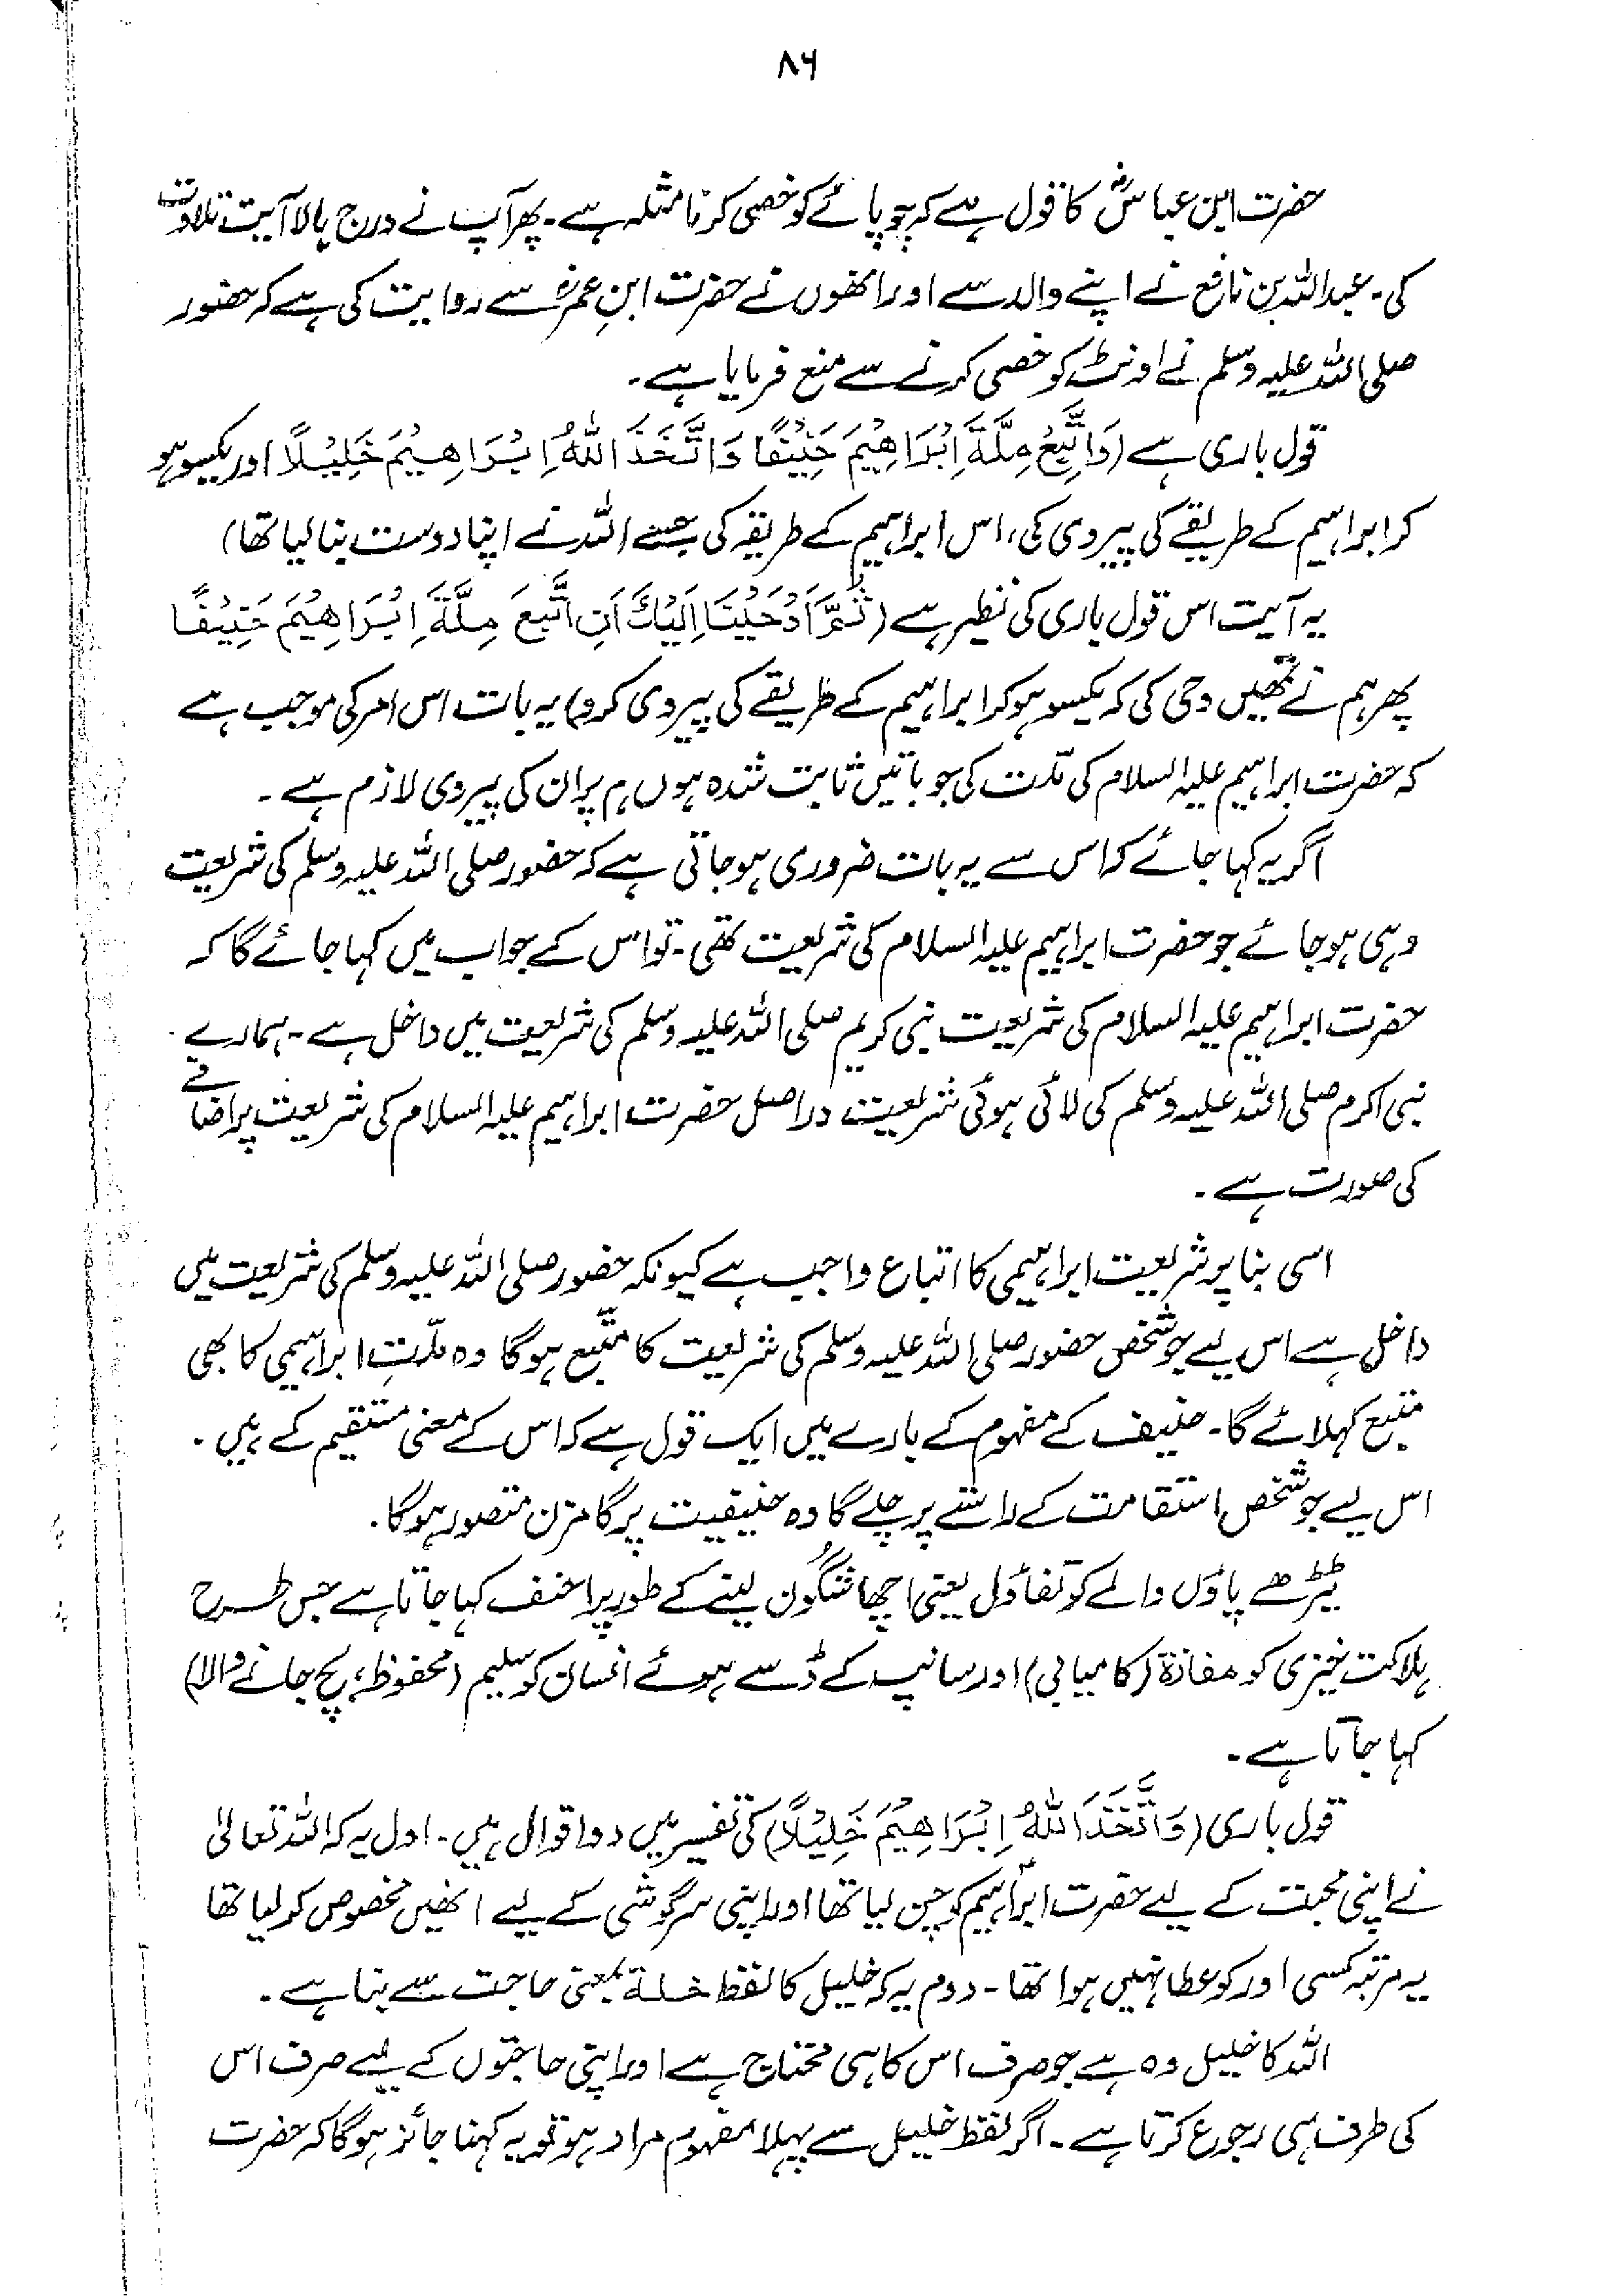 ۸۶
حضرت ابن عباسؓ کا قول ہے کہ چوپائے کو خصی کرنا مثلہ ہے۔ پھر آپ نے درج بالا آیت تلاوت
کی۔ عبداللہ بن نافع نے اپنے والد سے اور انھوں نے حضرت ابنِ عمرؓ سے روایت کی ہے کہ حضور
صلی اللہ علیہ وسلم نے اونٹ کو خصی کرنے سے منع فرمایا ہے۔
قول باری ہے (وَاتَّبِعْ مِلَّةَ اِبْرَاهِيْمَ حَنِيْفًا وَاتَّخَذَ اللّٰهُ اِبْرَاهِيْمَ خَلِيْلًا اور یکسو ہو
کر ابراہیم کے طریقے کی پیروی کی، اس ابراہیم کے طریقہ کی جسے اللہ نے اپنا دوست بنا لیا تھا)
یہ آیت اس قول باری کی نظیر ہے (ثُمَّ اَوْحَيْنَا اِلَيْكَ اَنِ اتَّبِعَ مِلَّةَ اِبْرَاهِيْمَ حَنِيْفًا
پھر ہم نے تمھیں وحی کی کہ یکسو ہو کر ابراہیم کے طریقے کی پیروی کرو) یہ بات اس امر کی موجب ہے
کہ حضرت ابراہیم علیہ السلام کی ملّت کی جو باتیں ثابت شدہ ہوں ہم پر ان کی پیروی لازم ہے۔
اگر یہ کہا جائے کہ اس سے یہ بات ضروری ہو جاتی ہے کہ حضور صلی اللہ علیہ وسلم کی شریعت
وہی ہو جائے جو حضرت ابراہیم علیہ السلام کی شریعت تھی۔ تو اس کے جواب میں کہا جائے گا کہ
حضرت ابراہیم علیہ السلام کی شریعت نبی کریم صلی اللہ علیہ وسلم کی شریعت میں داخل ہے۔ ہمارے
نبی اکرم صلی اللہ علیہ وسلم کی لائی ہوئی شریعت دراصل حضرت ابراہیم علیہ السلام کی شریعت پر اضافے
کی صورت ہے۔
اسی بنا پر شریعت ابراہیمی کا اتباع واجب ہے کیونکہ حضور صلی اللہ علیہ وسلم کی شریعت میں
داخل ہے اس لیے جو شخص حضور صلی اللہ علیہ وسلم کی شریعت کا متّبع ہوگا وہ ملّتِ ابراہیمی کا بھی
متبع کہلائے گا۔ حنیف کے مفہوم کے بارے میں ایک قول ہے کہ اس کے معنی مستقیم کے ہیں۔
اس لیے جو شخص استقامت کے راستے پر چلے گا وہ حنیفیت پر گامزن متصور ہوگا۔
ٹیڑھے پاؤں والے کو تفاؤل یعنی اچھا شگُون لینے کے طور پر احنف کہا جاتا ہے جس طرح
ہلاکت خیزی کو مفازة (کامیابی) اور سانپ کے ڈسے ہوئے انسان کو سلیم (محفوظ، بچ جانے والا)
کہا جاتا ہے۔
قول باری (وَاتَّخَذَ اللّٰهُ اِبْرَاهِيْمَ خَلِيْلًا) کی تفسیر میں دو اقوال ہیں۔ اول یہ کہ اللہ تعالیٰ
نے اپنی محبت کے لیے حضرت ابراہیمؑ کو چن لیا تھا اور اپنی سرگوشی کے لیے انھیں مخصوص کر لیا تھا
یہ مرتبہ کسی اور کو عطا نہیں ہوا تھا۔ دوم یہ کہ خلیل کا لفظ خلة بمعنی حاجت سے بنا ہے۔
اللہ کا خلیل وہ ہے جو صرف اس کا ہی محتاج ہے اور اپنی حاجتوں کے لیے صرف اس
کی طرف ہی رجوع کرتا ہے۔ اگر لفظ خلیل سے پہلا مفہوم مراد ہو تو یہ کہنا جائز ہوگا کہ حضرت